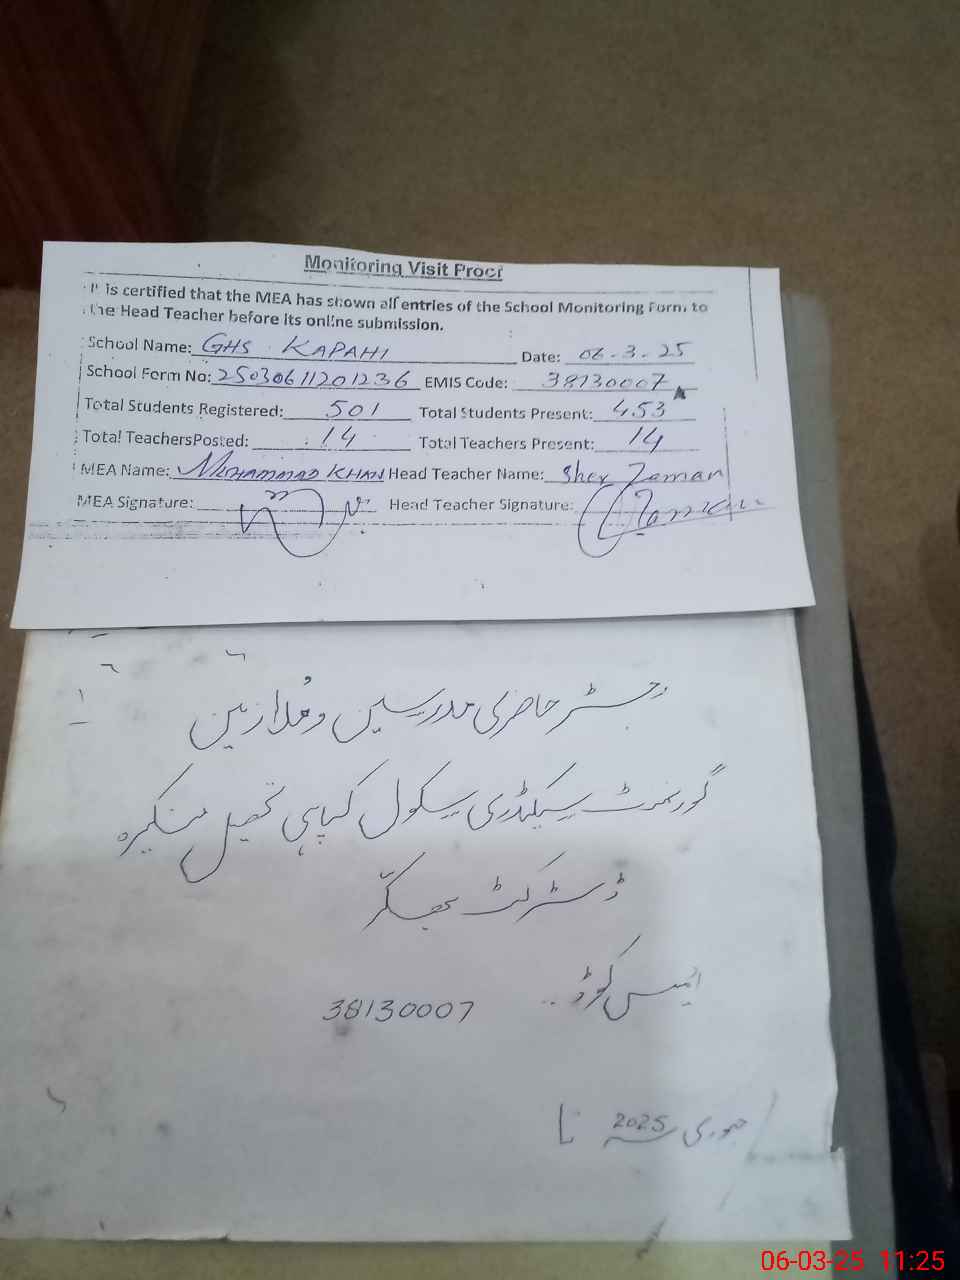 Monitoring Visit Proof
It is certified that the MEA has shown all entries of the School Monitoring Form to
the Head Teacher before its online submission.
School Name: GHS KAPAHI Date: 06-3-25
School Form No: 25030611201236 EMIS Code: 38130007
Total Students Registered: 501 Total Students Present: 453
Total TeachersPosted: 14 Total Teachers Present: 14
MEA Name: MUHAMMAD KHAN Head Teacher Name: Sher Zaman
MEA Signature: Head Teacher Signature: Zaman
رجسٹر حاضری مدرسین و ملازمین
گورنمنٹ سیکنڈری سکول کپاہی تحصیل منکیرہ
ڈسٹرکٹ بھکر
ایمس کوڈ ..
38130007
جنوری 2025 تا
06-03-25 11:25